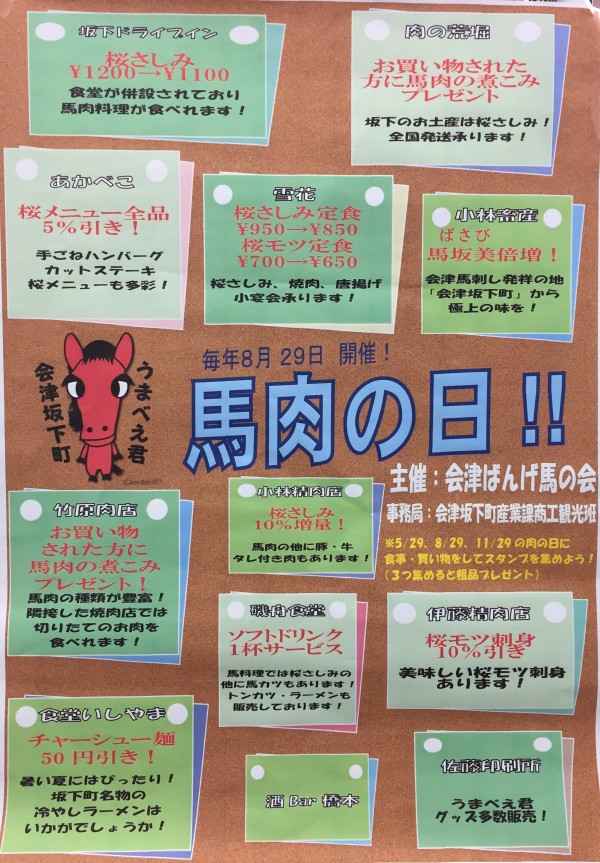 坂下ドライブイン
桜さしみ
¥1200→¥1100
食堂が併設されており
馬肉料理が食べれます！
肉の荒堀
お買い物された
方に馬肉の煮こみ
プレゼント
坂下のお土産は桜さしみ！
全国発送承ります！
あかべこ
桜メニュー全品
5%引き！
手ごねハンバーグ
カットステーキ
桜メニューも多彩！
雪花
桜さしみ定食
¥950→¥850
桜モツ定食
¥700→¥650
桜さしみ、焼肉、唐揚げ
小宴会承ります！
小林畜産
ばさび
馬坂美倍増！
会津馬刺し発祥の地
「会津坂下町」から
極上の味を！
うまべえ君
会津坂下町
毎年8月29日 開催！
馬肉の日!!
主催：会津ばんげ馬の会
事務局：会津坂下町産業課商工観光班
※5/29、8/29、11/29の肉の日に
食事・買い物をしてスタンプを集めよう！
（3つ集めると粗品プレゼント）
竹原肉店
お買い物
された方に
馬肉の煮こみ
プレゼント！
馬肉の種類が豊富！
隣接した焼肉店では
切りたてのお肉を
食べれます！
小林精肉店
桜さしみ
10%増量！
馬肉の他に豚・牛
タレ付き肉もあります！
磯舟食堂
ソフトドリンク
1杯サービス
馬料理では桜さしみの
他に馬カツもあります！
トンカツ・ラーメンも
販売しております！
伊藤精肉店
桜モツ刺身
10%引き
美味しい桜モツ刺身
あります！
食堂いしやま
チャーシュー麺
50円引き！
暑い夏にはぴったり！
坂下町名物の
冷やしラーメンは
いかがでしょうか！
酒Bar橋本
佐藤印刷所
うまべえ君
グッズ多数販売！